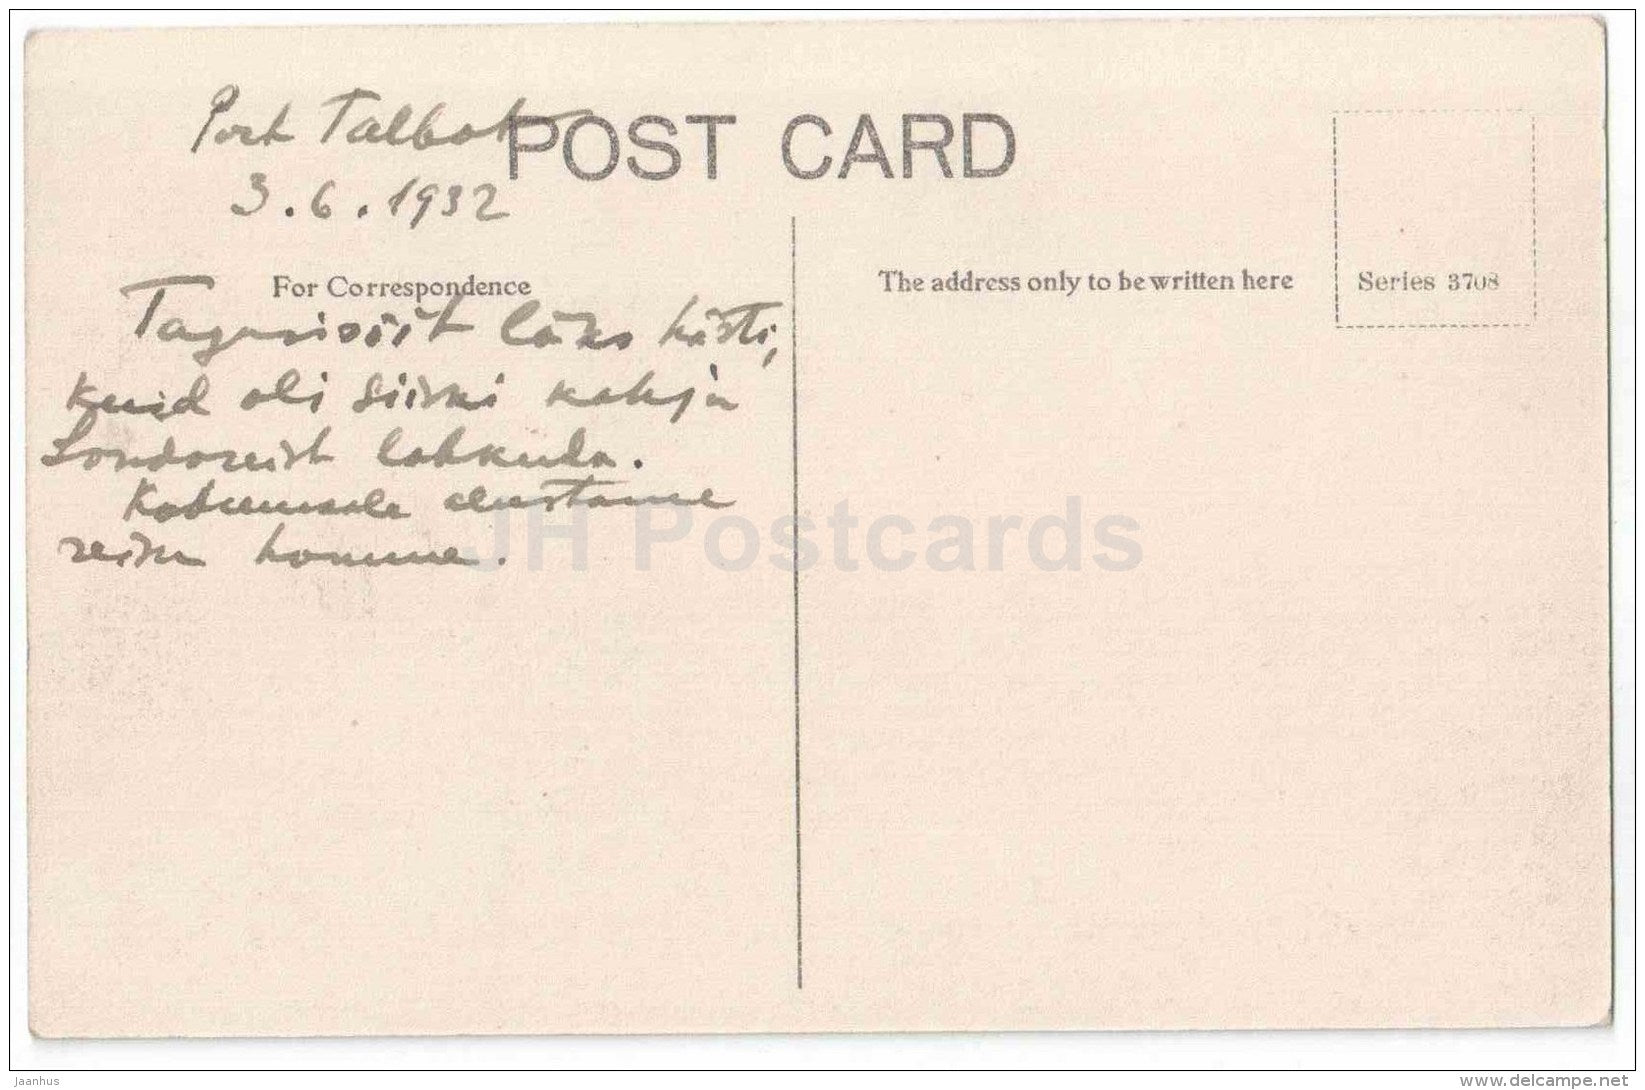 Port Talbot
POST CARD
3.6.1932
For Correspondence
The address only to be written here
Series 3708
Tagasisõit läks hästi,
kuid oli siiski kahju
Londonist lahkuda.
alustame
reisu homme.
JH Postcards
Jaanhus
www.delcampe.net